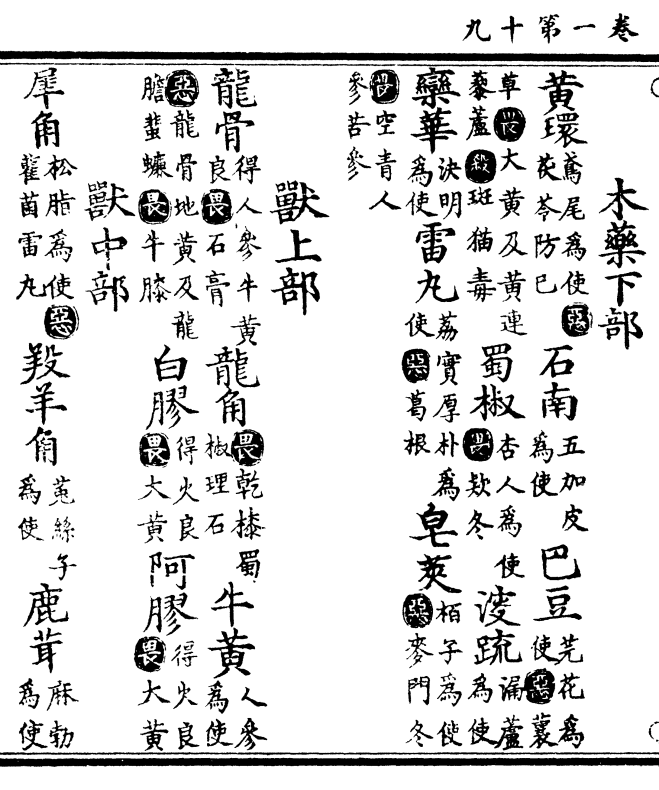 卷一第十九
木藥下部
黃環鳶尾為使惡茯苓防已石南五加皮為使巴豆芫花為使惡蘘
草畏大黃及黃連藜蘆殺斑猫毒蜀椒杏人為使畏欵冬溲疏漏蘆為使
欒華决明為使雷丸荔實厚朴為使惡葛根皂莢栢子為使惡麥門冬
畏空青人參苦參
獸上部
龍骨得人參牛黃良畏石膏龍角畏乾漆蜀椒理石牛黃人參為使
惡龍骨地黃及龍膽蜚蠊畏牛膝白膠得火良畏大黃阿膠得火良畏大黃
獸中部
犀角松脂為使惡雚菌雷丸羖羊角菟絲子為使鹿茸麻勃為使